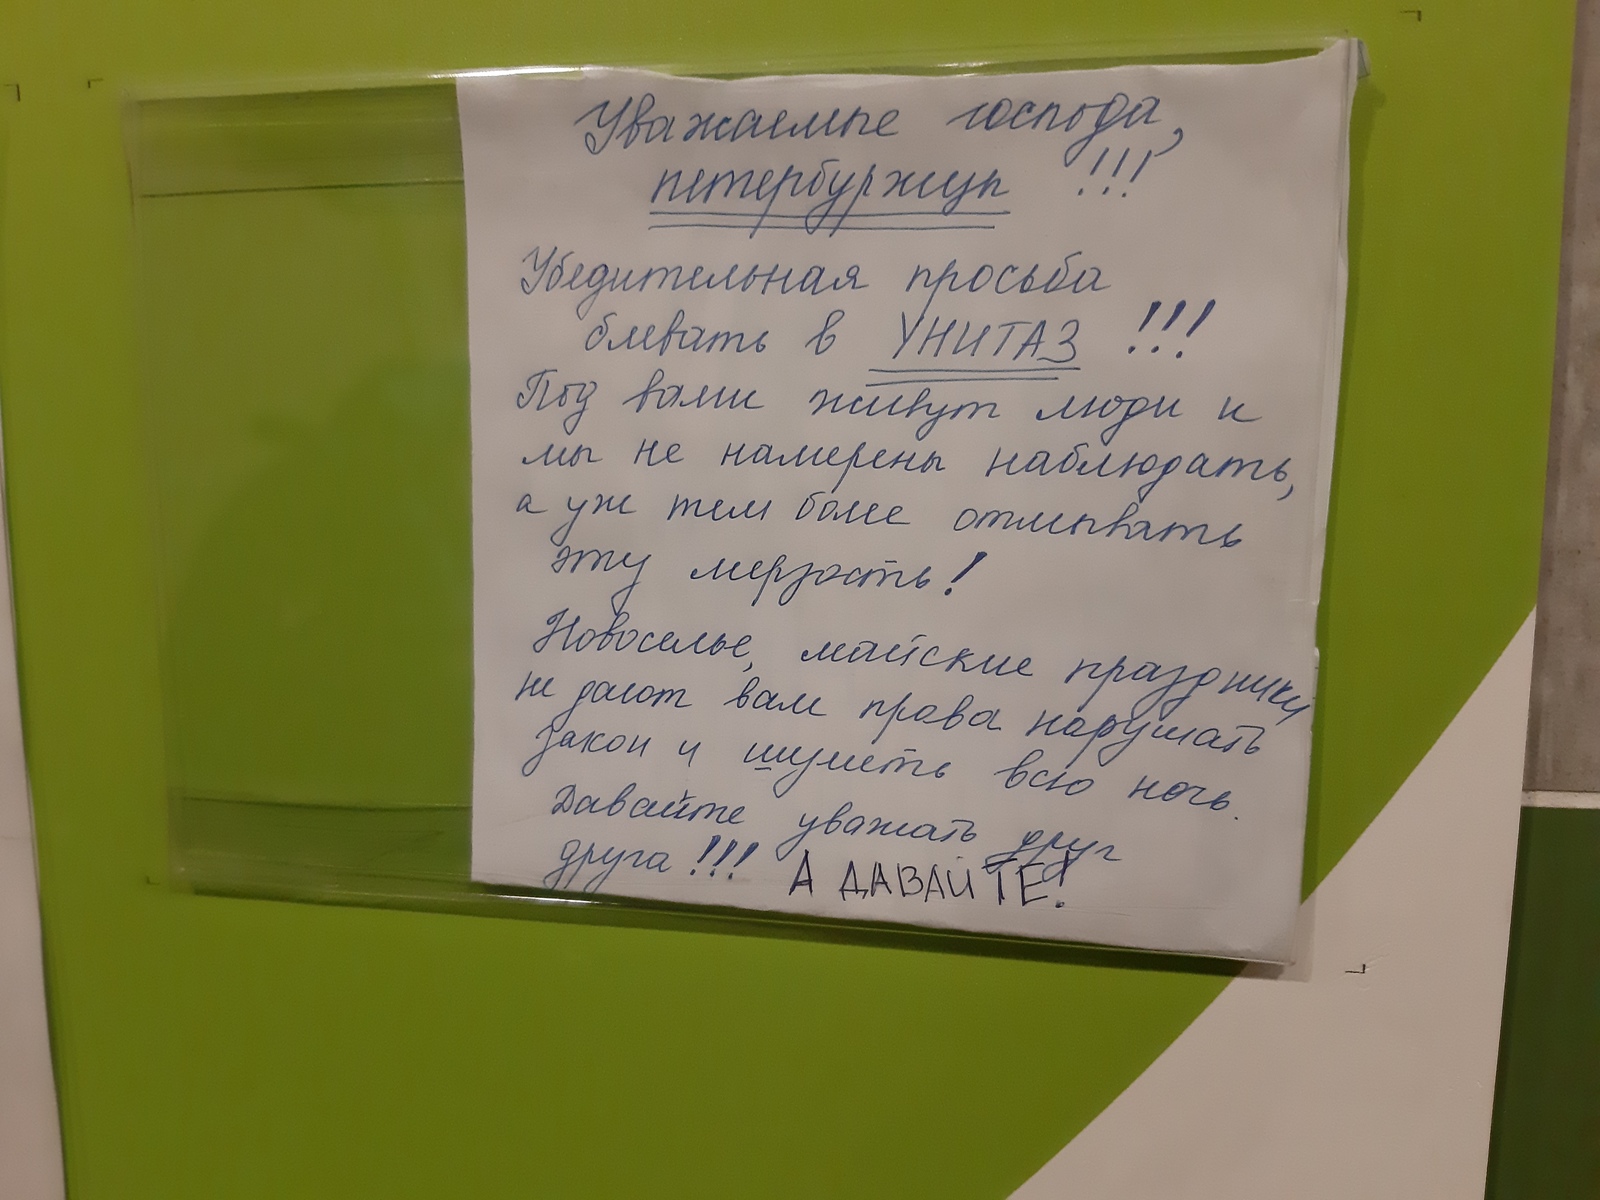 Уважаемые господа,
петербуржцы !!!
Убедительная просьба
блевать в УНИТАЗ !!!
Под вами живут люди и
мы не намерены наблюдать,
а уж тем более отмывать
эту мерзость!
Новоселье, майские праздники
не дают вам права нарушать
закон и шуметь всю ночь.
Давайте уважать друг
друга!!! А ДАВАЙТЕ!